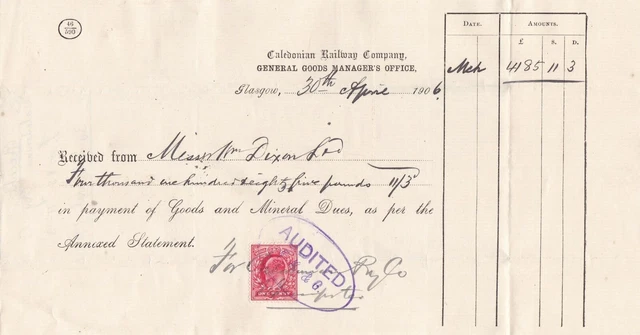 46
590
Caledonian Railway Company,
GENERAL GOODS MANAGER'S OFFICE,
Glasgow, 30th April 1906.
Received from Messrs Wm Dixon Ltd
Four thousand one hundred & eighty five pounds 11/3d
in payment of Goods and Mineral Dues, as per the
Annexed Statement.
For Ry Co
AUDITED
DATE. AMOUNTS.
£ S. D.
Mch 4185 11 3